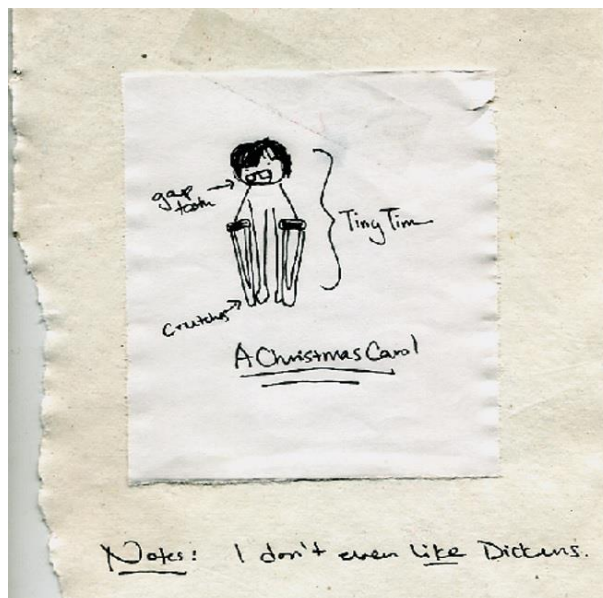 gap
tooth
Tiny Tim
Crutches
A Christmas Carol
Notes: I don't even like Dickens.